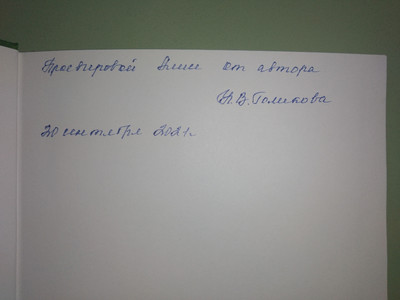 Просвировой Элле от автора
Н.В. Голикова
20 сентября 2021г.